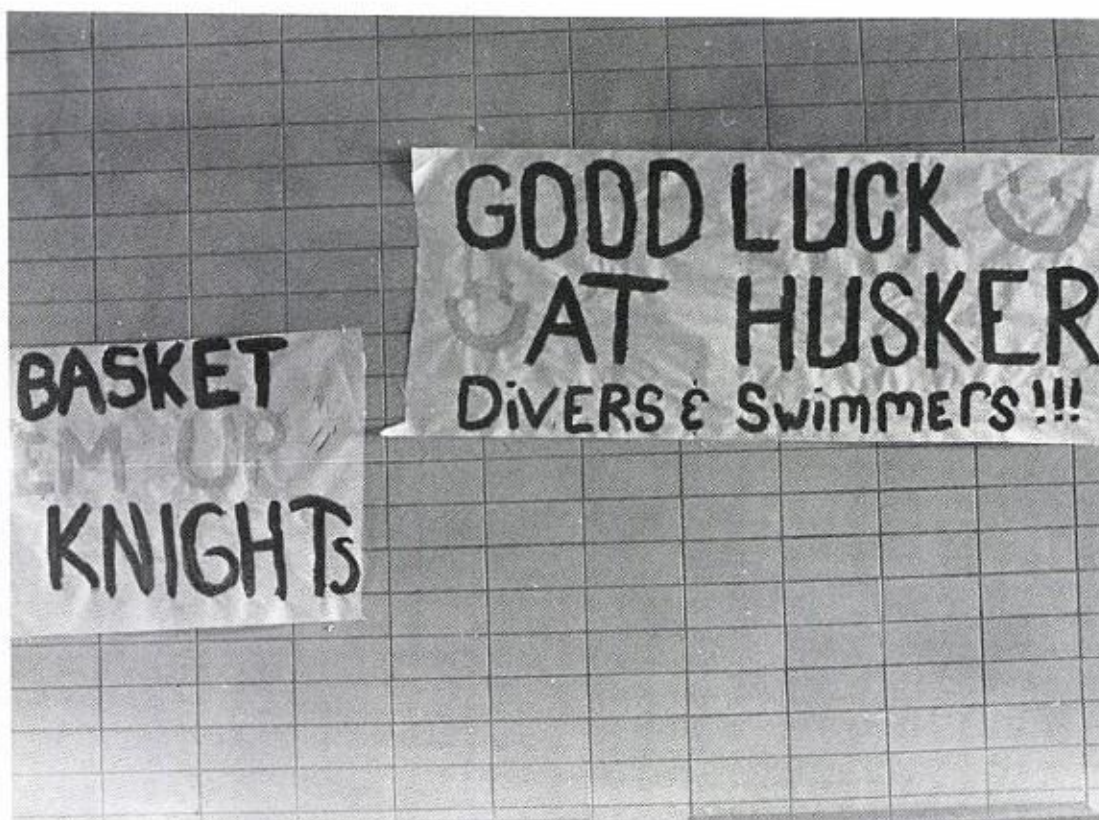 BASKET
EM UP
KNIGHTs
GOOD LUCK
AT HUSKER
DiVERS & SwimmERS!!!